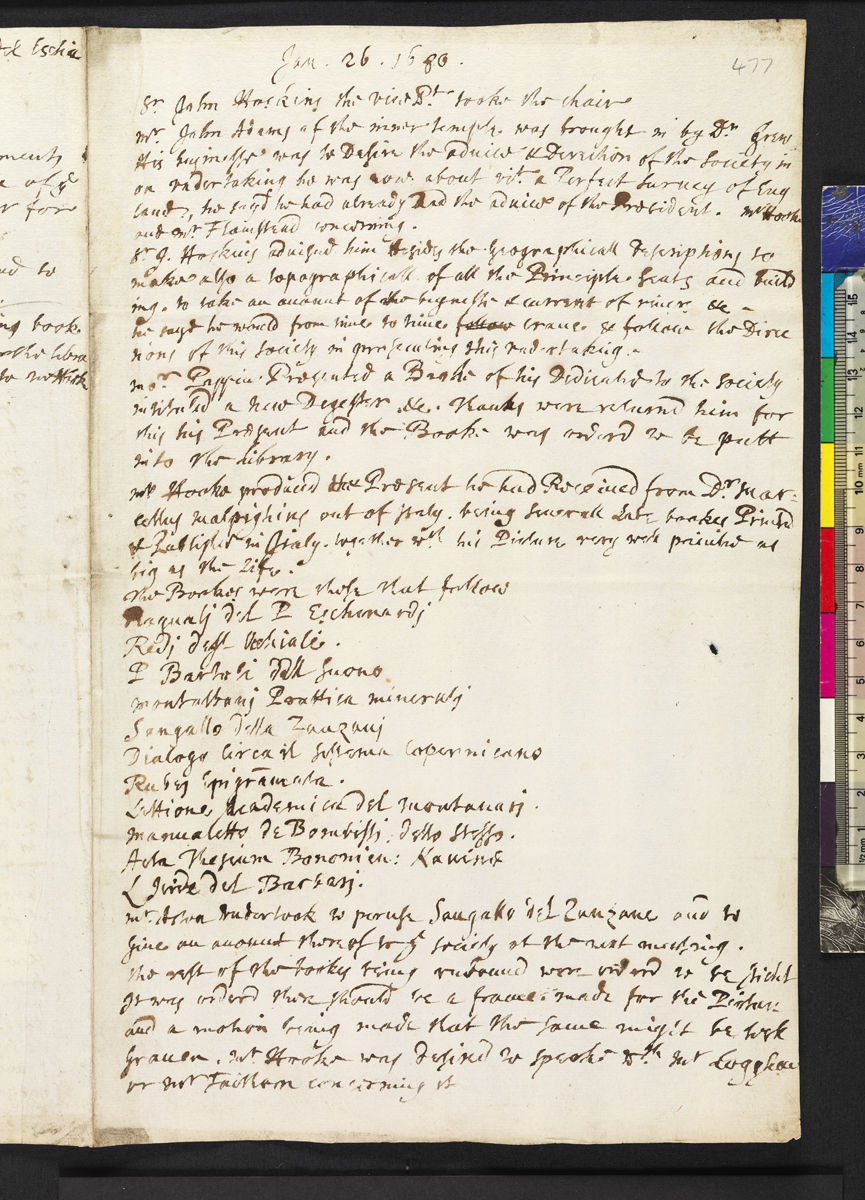 Jan. 26. 1680.
477
Sr. John Hoskins the vice Pt. tooke the chair
mr. John Adams of the inner temple. was brought in by Dr Grew
His businesse was to Desire the advice & Direction of the Society in
an undertaking he was now about vizt. a Perfect Survey of Eng
land, he sayd he had already had the advice of the President. mr Hooke
and mr. Flamstead concerning.
Sr. J. Hoskins advised him besides the geographicall Descriptions to
make also a topographicall of all the Principle Seats and build
ing. to take an account of the bignesse & current of rivers &c -
he sayd he would from time to time follow crave & follow the Direc
tions of this Society in prosecuting this undertaking. -
mor. Pappin. Presented a Booke of his Dedicated to the society
intituled a new Degester &c. thanks were returnd him for
this his Present and the Booke was orderd to be putt
into the Library.
mr Hooke produced the Present he had Received from Dr. Mar=
cellus malpighius out of Italy. being severall late bookes Printed
& Published in Italy. together wth. his Picture very well painted as
big as the Life.
the Bookes were these that follow
Ragualj del P Eschinardj
Redj degl Uchiali.
P Bartoli dell Suono
montalbanj Prattica mineralj
Sangallo della Zanzanj
Dialogo Circa il Sistema Copernicano
Rubej Epigramata.
Lettione Academica del montanarj.
manualetto de Bombisti. dello stesso.
Acta Thesium Bononien: Kavinae
L Iride del Barbarj.
mr. Aston undertook to peruse Sangallo del Zanzane and to
give an account thereof to ye society at the next meeting.
the rest of the bookes being unbound were orderd to be sticht
It was orderd there should be a frame made for the Picture
and a motion being made that the same might be well
Graven. mr Hooke was desired to speake wth mr Logghan
or mr Faithorn concerning it
del Eschin
ments
for
ad to
ing book
to mr Hook